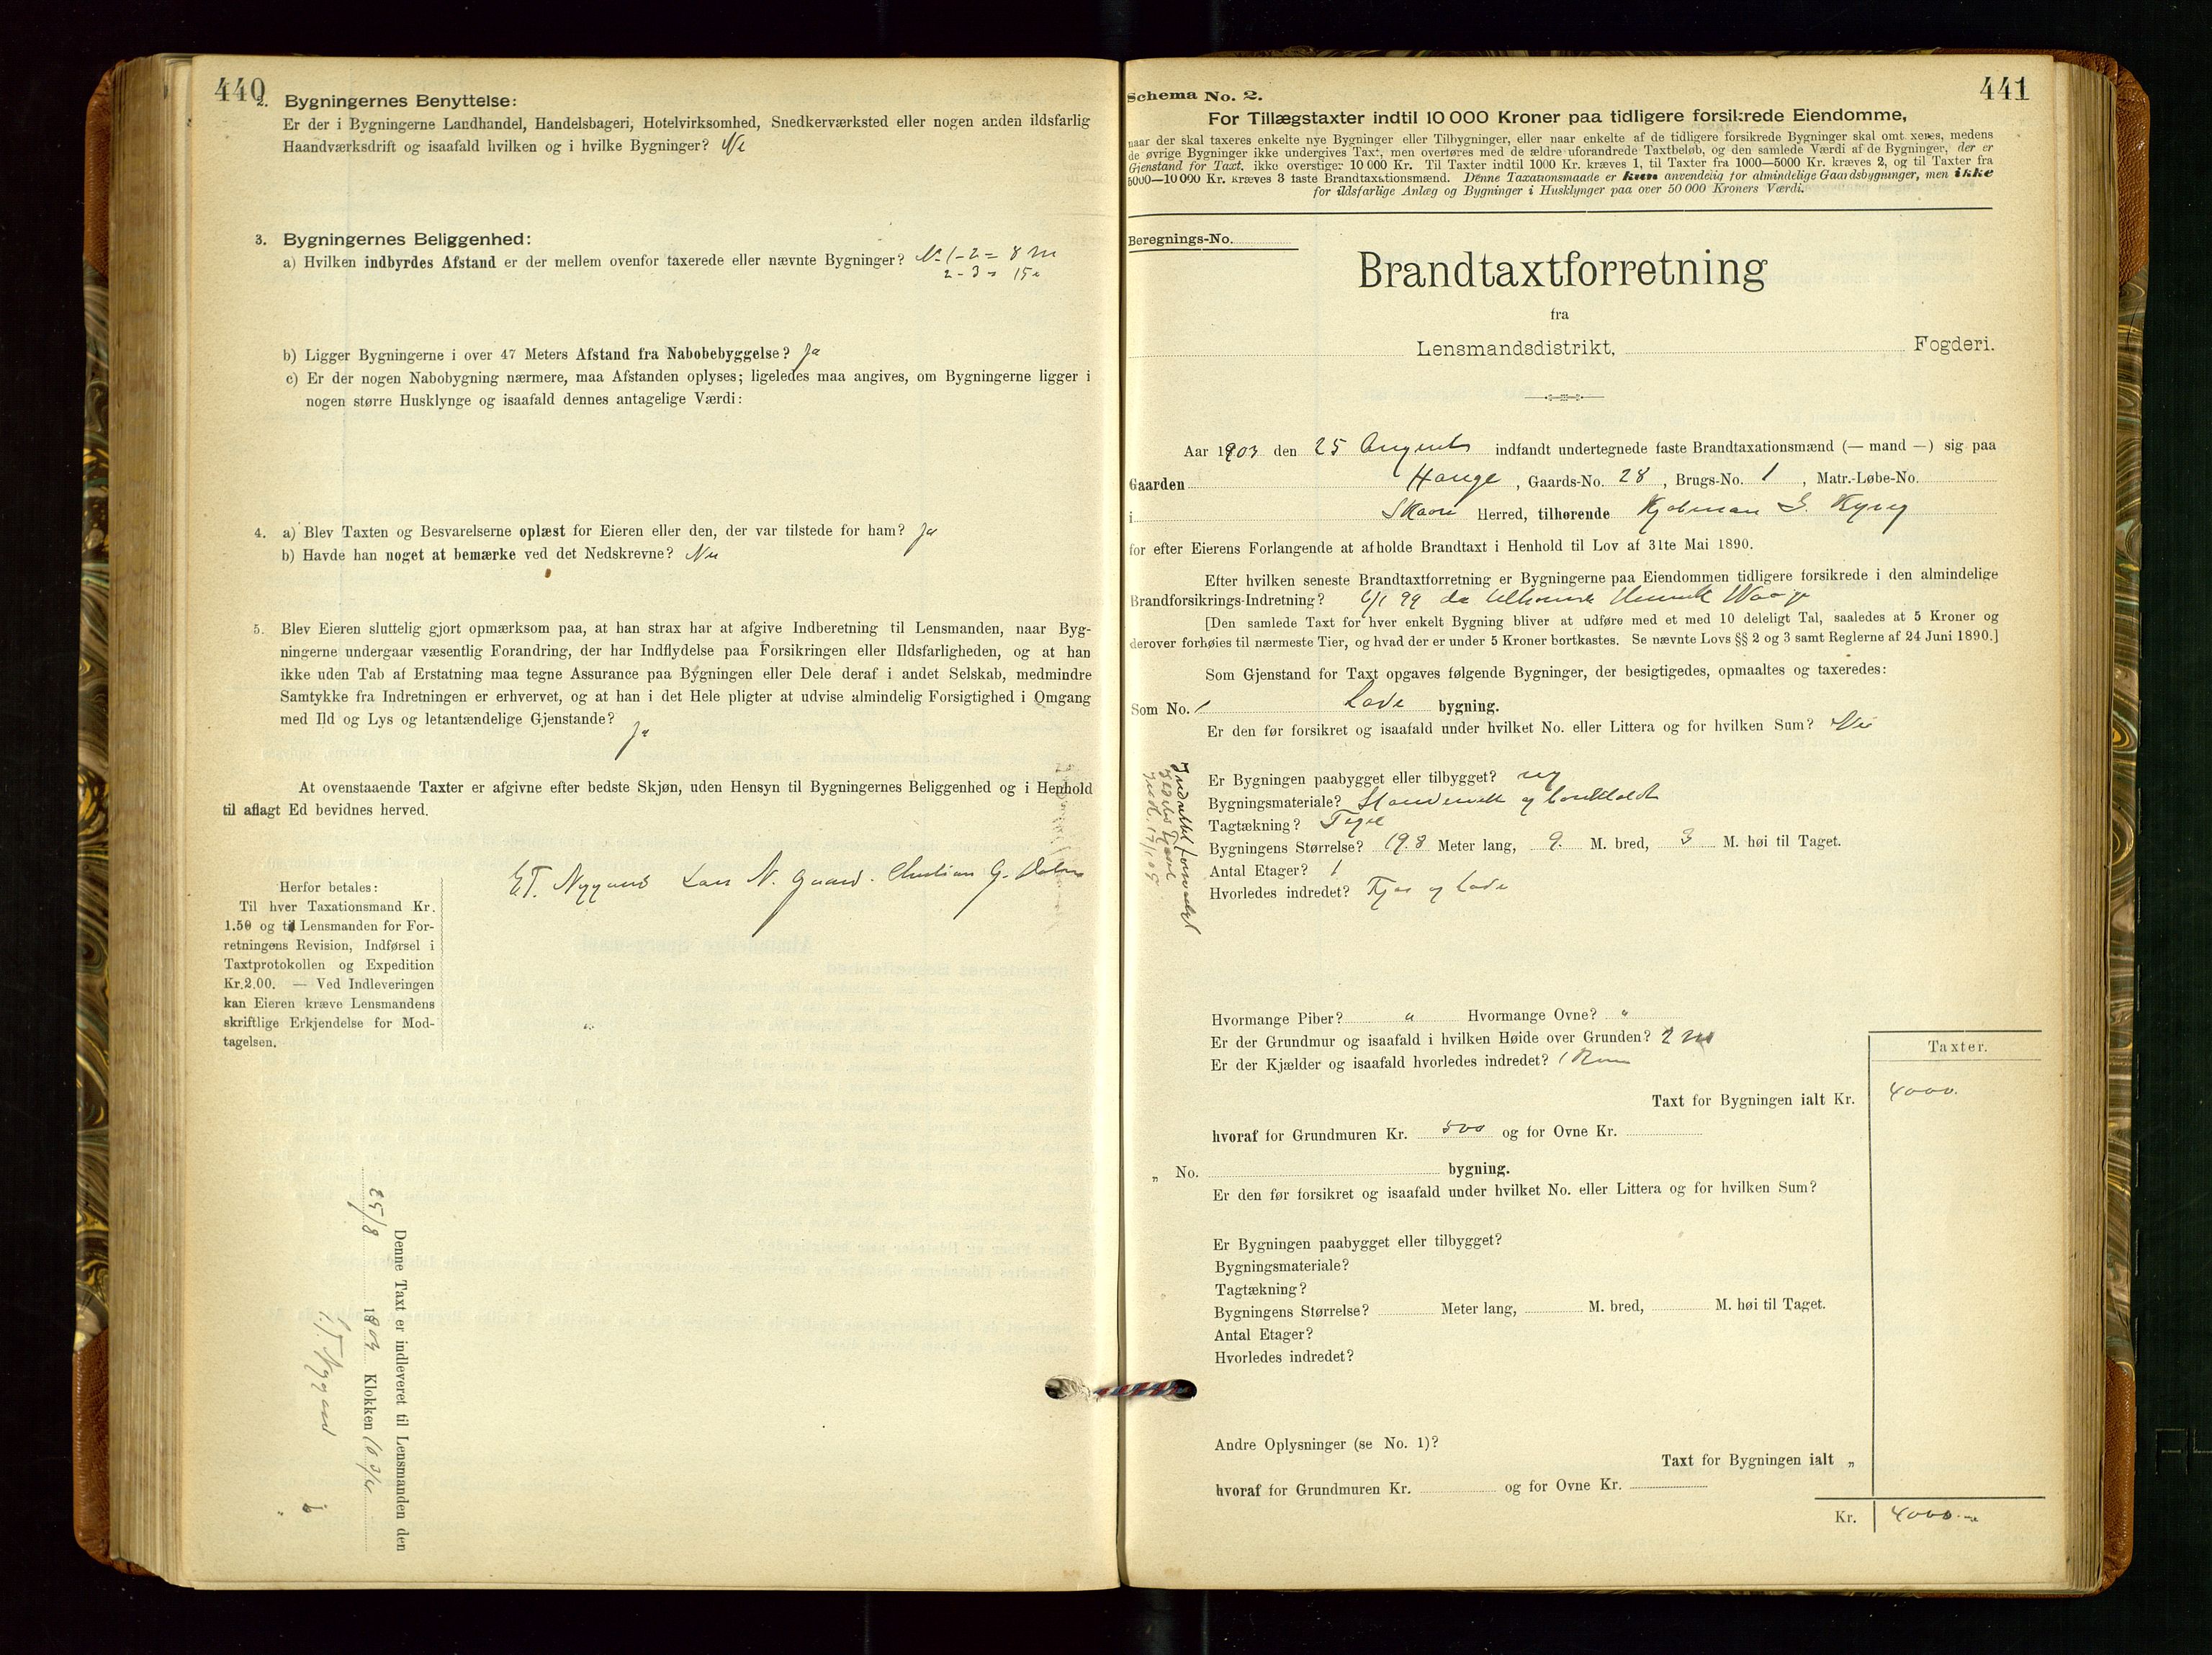 440
2. Bygningernes Benyttelse:
Er der i Bygningerne Landhandel, Handelsbageri, Hotelvirksomhed, Snedkerværksted eller nogen anden ildsfarlig
Haandværksdrift og isaafald hvilken og i hvilke Bygninger? Nei
3. Bygningernes Beliggenhed:
a) Hvilken indbyrdes Afstand er der mellem ovenfor taxerede eller nævnte Bygninger? No 1-2 = 8 m
2-3 = 15 "
b) Ligger Bygningerne i over 47 Meters Afstand fra Nabobebyggelse? Ja
c) Er der nogen Nabobygning nærmere, maa Afstanden oplyses; ligeledes maa angives, om Bygningerne ligger i
nogen større Husklynge og isaafald dennes antagelige Værdi:
4. a) Blev Taxten og Besvarelserne oplæst for Eieren eller den, der var tilstede for ham? Ja
b) Havde han noget at bemærke ved det Nedskrevne? Nei
5. Blev Eieren sluttelig gjort opmærksom paa, at han strax har at afgive Indberetning til Lensmanden, naar Byg-
ningerne undergaar væsentlig Forandring, der har Indflydelse paa Forsikringen eller Ildsfarligheden, og at han
ikke uden Tab af Erstatning maa tegne Assurance paa Bygningen eller Dele deraf i andet Selskab, medmindre
Samtykke fra Indretningen er erhvervet, og at han i det Hele pligter at udvise almindelig Forsigtighed i Omgang
med Ild og Lys og letantændelige Gjenstande?
Ja
At ovenstaaende Taxter er afgivne efter bedste Skjøn, uden Hensyn til Bygningernes Beliggenhed og i Henhold
til aflagt Ed bevidnes herved.
E.T. Nygaard Lars N. Gaard. Christian G.
Herfor betales:
Til hver Taxationsmand Kr.
1.50 og til Lensmanden for For-
retningens Revision, Indførsel i
Taxtprotokollen og Expedition
Kr.2.00. — Ved Indleveringen
kan Eieren kræve Lensmandens
skriftlige Erkjendelse for Mod-
tagelsen.
Denne Taxt er indleveret til Lensmanden den
25/8 1903 Klokken
Nygaard
441
Schema No. 2.
For Tillægstaxter indtil 10 000 Kroner paa tidligere forsikrede Eiendomme,
naar der skal taxeres enkelte nye Bygninger eller Tilbygninger, eller naar enkelte af de tidligere forsikrede Bygninger skal omt xeres, medens
de øvrige Bygninger ikke undergives Taxt, men overføres med de ældre uforandrede Taxtbeløb, og den samlede Værdi af de Bygninger, der er
Gjenstand for Taxt, ikke overstiger 10 000 Kr. Til Taxter indtil 1000 Kr. kræves 1, til Taxter fra 1000—5000 Kr. kræves 2, og til Taxter fra
5000—10 000 Kr. kræves 3 faste Brandtaxationsmænd. Denne Taxationsmaade er kun anvendelig for almindelige Gaardsbygninger, men ikke
for ildsfarlige Anlæg og Bygninger i Husklynger paa over 50 000 Kroners Værdi.
Beregnings-No.
Brandtaxtforretning
fra
Lensmandsdistrikt, Fogderi.
Aar 1903 den 25 August indfandt undertegnede faste Brandtaxationsmænd (— mand —) sig paa
Gaarden Hauge, Gaards-No. 28, Brugs-No. 1, Matr.-Løbe-No.
i Skaare Herred, tilhørende
for efter Eierens Forlangende at afholde Brandtaxt i Henhold til Lov af 31te Mai 1890.
Efter hvilken seneste Brandtaxtforretning er Bygningerne paa Eiendommen tidligere forsikrede i den almindelige
Brandforsikrings-Indretning? 6/1 99 da
[Den samlede Taxt for hver enkelt Bygning bliver at udføre med et med 10 deleligt Tal, saaledes at 5 Kroner og
derover forhøies til nærmeste Tier, og hvad der er under 5 Kroner bortkastes. Se nævnte Lovs §§ 2 og 3 samt Reglerne af 24 Juni 1890.]
Som Gjenstand for Taxt opgaves følgende Bygninger, der besigtigedes, opmaaltes og taxeredes:
Som No. 1 Lade bygning.
Er den før forsikret og isaafald under hvilket No. eller Littera og for hvilken Sum? Nei
Er Bygningen paabygget eller tilbygget? ny
Bygningsmateriale? og
Tagtækning? Tegl
Bygningens Størrelse? 19.8 Meter lang, 9. M. bred, 3 M. høi til Taget.
Antal Etager? 1
Hvorledes indredet? Fjøs og Lade
Hvormange Piber? " Hvormange Ovne? "
Er der Grundmur og isaafald i hvilken Høide over Grunden? 2 m
Er der Kjælder og isaafald hvorledes indredet? 1 Rum
Taxter.
Taxt for Bygningen ialt Kr. 4000.
hvoraf for Grundmuren Kr. 500 og for Ovne Kr.
„ No. bygning.
Er den før forsikret og isaafald under hvilket No. eller Littera og for hvilken Sum?
Er Bygningen paabygget eller tilbygget?
Bygningsmateriale?
Tagtækning?
Bygningens Størrelse? Meter lang, M. bred, M. høi til Taget.
Antal Etager?
Hvorledes indredet?
Andre Oplysninger (se No. 1)?
Taxt for Bygningen ialt „
hvoraf for Grundmuren Kr. og for Ovne Kr.
Kr. 4000.